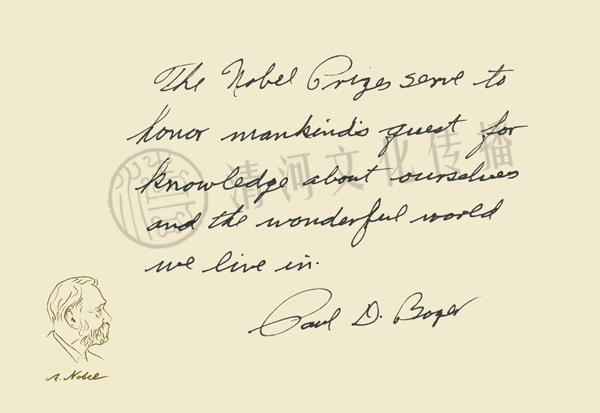 The Nobel Prizes serve to
honor mankind's quest for
knowledge about ourselves
and the wonderful world
we live in.
Paul D. Boyer
清河文化传播
A. Nobel